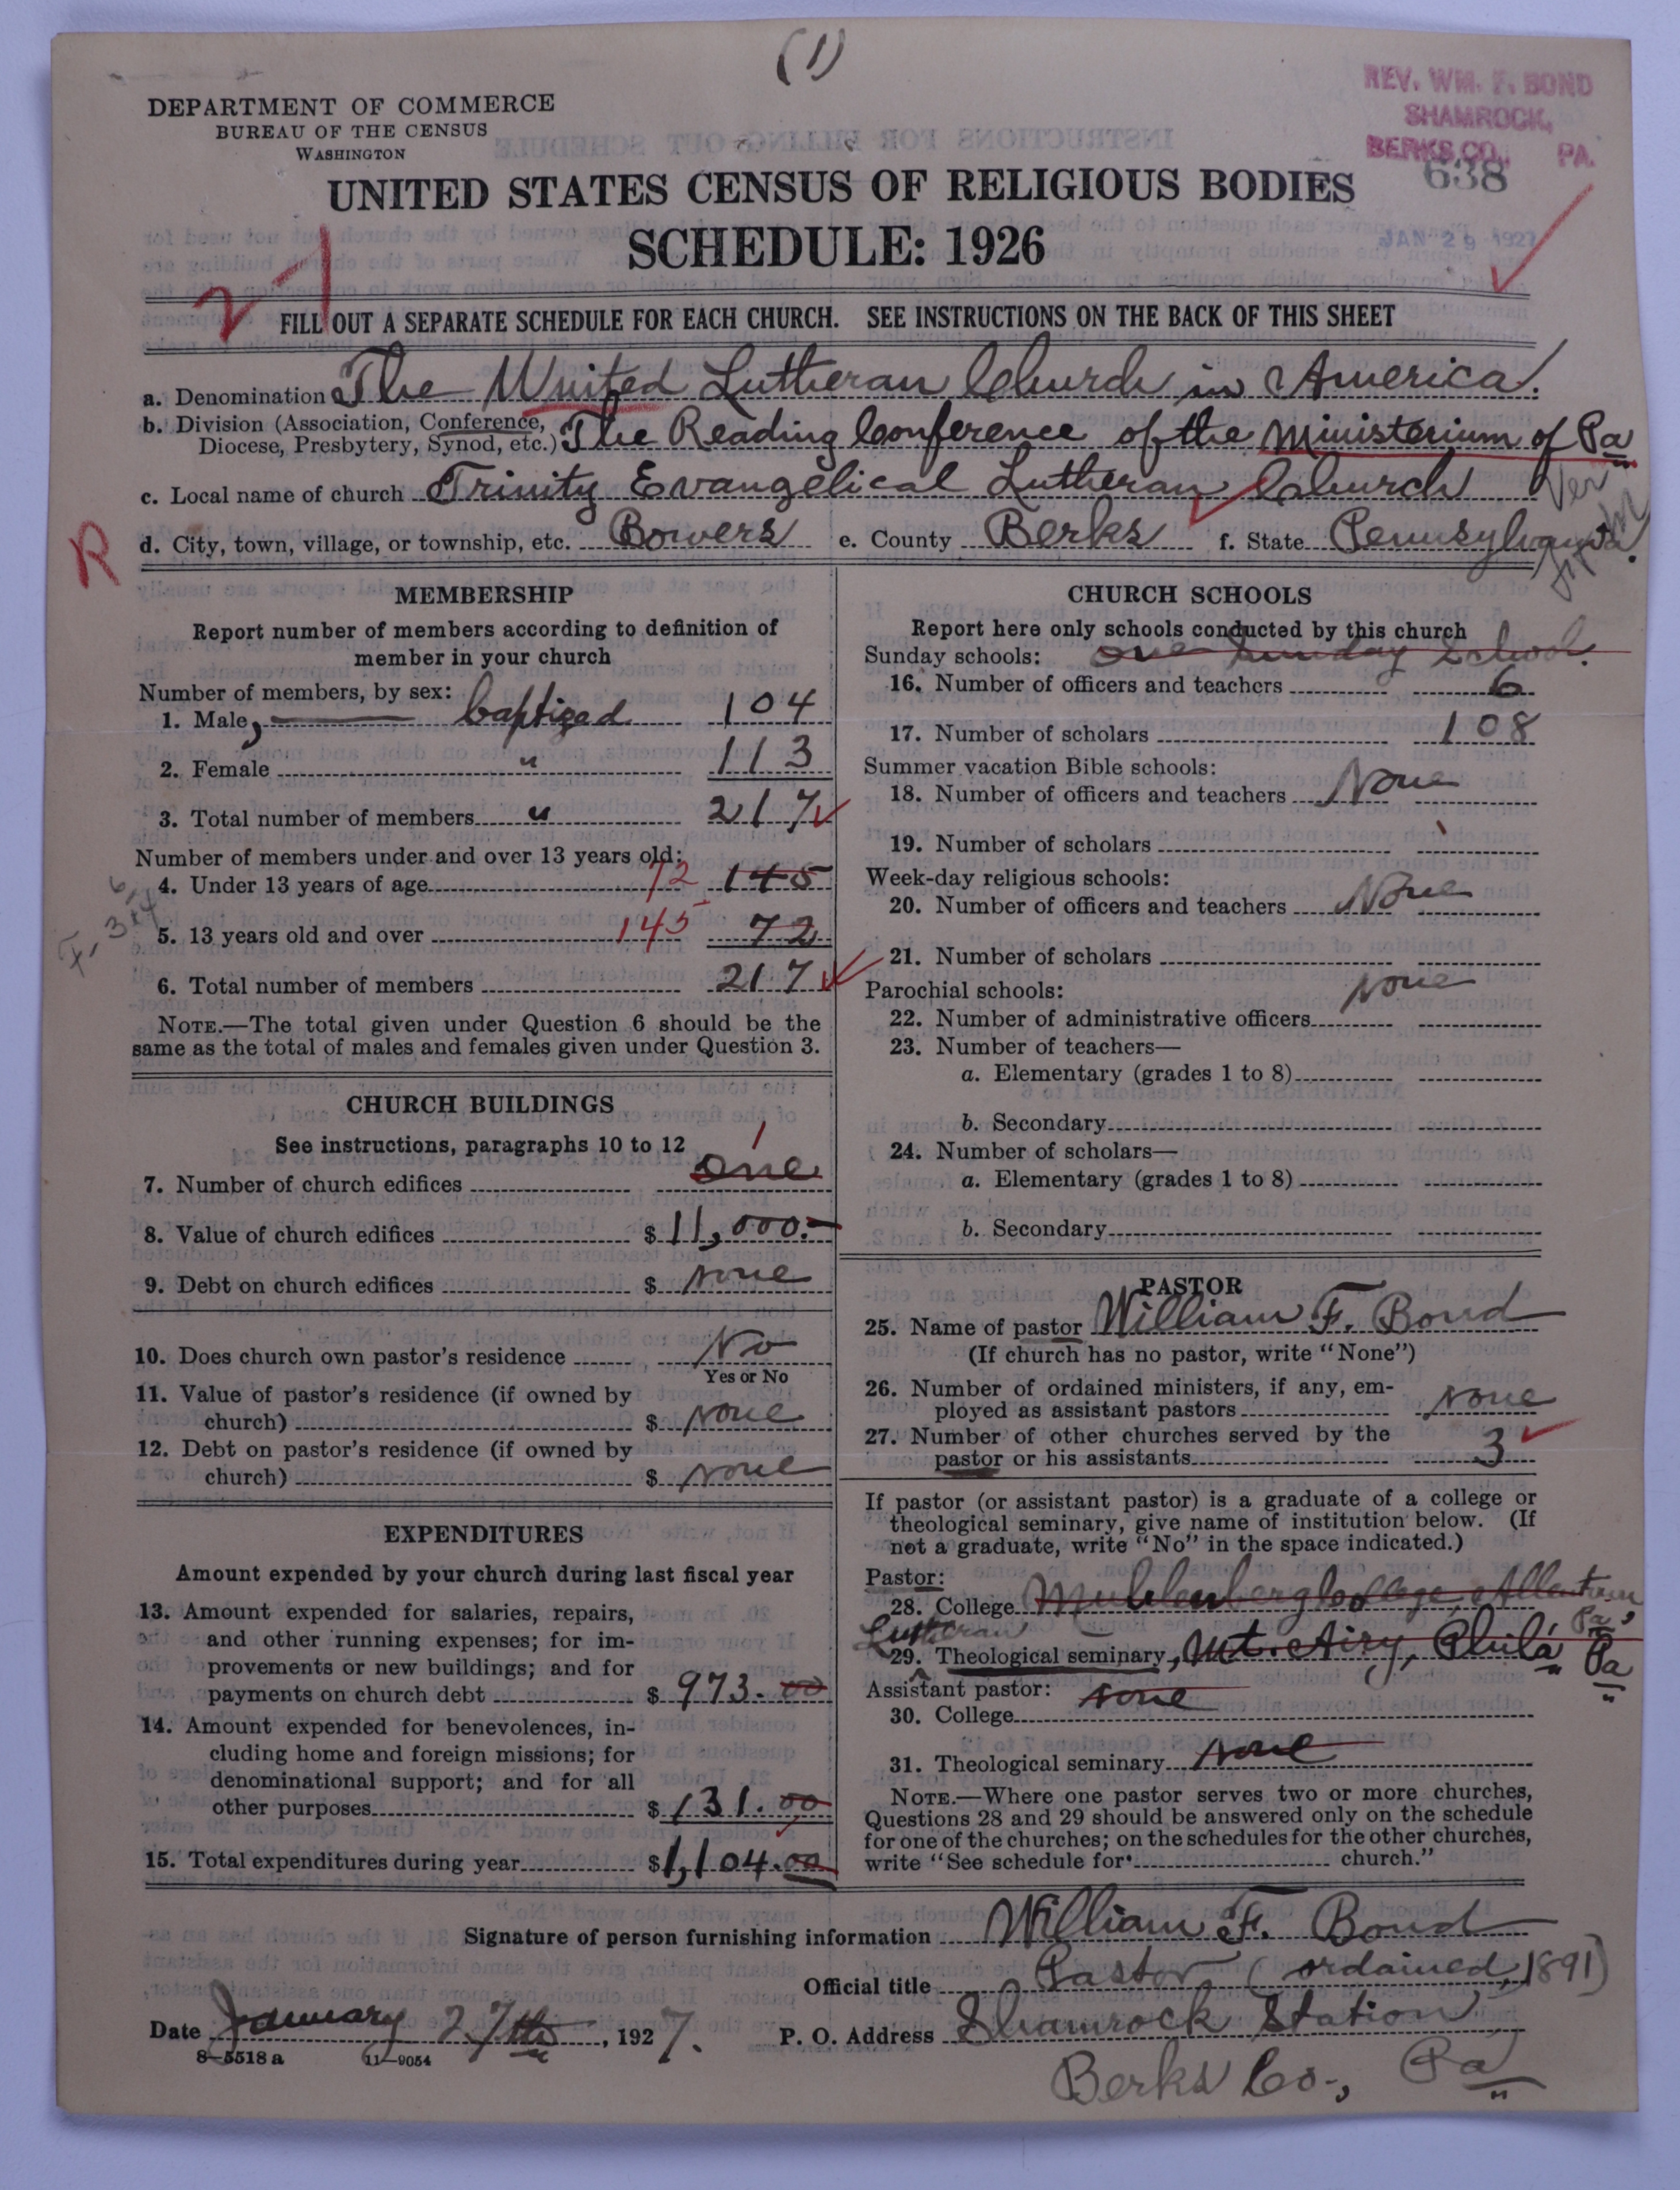 (1)
REV. WM. F. BOND
SHAMROCK,
BERKS CO., PA.
638
JAN 29 1927
DEPARTMENT OF COMMERCE
BUREAU OF THE CENSUS
WASHINGTON
UNITED STATES CENSUS OF RELIGIOUS BODIES
SCHEDULE: 1926
FILL OUT A SEPARATE SCHEDULE FOR EACH CHURCH. SEE INSTRUCTIONS ON THE BACK OF THIS SHEET
a. Denomination The United Lutheran Church in America.
b. Division (Association, Conference, Diocese, Presbytery, Synod, etc.) The Reading Conference of the Ministerium of Pa
c. Local name of church Trinity Evangelical Lutheran Church
R
d. City, town, village, or township, etc. Bowers e. County Berks f. State Pennsylvania.
MEMBERSHIP
Report number of members according to definition of
member in your church
Number of members, by sex:
1. Male, baptized 104
2. Female " 113
3. Total number of members " 217
Number of members under and over 13 years old:
4. Under 13 years of age 72 145
5. 13 years old and over 145 72
6. Total number of members 217
NOTE.—The total given under Question 6 should be the
same as the total of males and females given under Question 3.
CHURCH BUILDINGS
See instructions, paragraphs 10 to 12
1
7. Number of church edifices one
8. Value of church edifices $ 11,000.-
9. Debt on church edifices $ none
10. Does church own pastor's residence No
Yes or No
11. Value of pastor's residence (if owned by
church) $ none
12. Debt on pastor's residence (if owned by
church) $ none
EXPENDITURES
Amount expended by your church during last fiscal year
13. Amount expended for salaries, repairs,
and other running expenses; for im-
provements or new buildings; and for
payments on church debt $ 973.00
14. Amount expended for benevolences, in-
cluding home and foreign missions; for
denominational support; and for all
other purposes $ 131.00
15. Total expenditures during year $1,104.00
CHURCH SCHOOLS
Report here only schools conducted by this church
Sunday schools: One Sunday School.
16. Number of officers and teachers 6
17. Number of scholars 108
Summer vacation Bible schools:
18. Number of officers and teachers None
19. Number of scholars
Week-day religious schools:
20. Number of officers and teachers None
21. Number of scholars
Parochial schools: none
22. Number of administrative officers
23. Number of teachers—
a. Elementary (grades 1 to 8)
b. Secondary
24. Number of scholars—
a. Elementary (grades 1 to 8)
b. Secondary
PASTOR
25. Name of pastor William F. Bond
(If church has no pastor, write "None")
26. Number of ordained ministers, if any, em-
ployed as assistant pastors none
27. Number of other churches served by the
pastor or his assistants 3
If pastor (or assistant pastor) is a graduate of a college or
theological seminary, give name of institution below. (If
not a graduate, write "No" in the space indicated.)
Pastor:
28. College Muhlenberg College, Allentown Pa,
Lutheran
29. Theological seminary, Mt. Airy, Phila Pa
Assistant pastor: none
30. College
31. Theological seminary none
NOTE.—Where one pastor serves two or more churches,
Questions 28 and 29 should be answered only on the schedule
for one of the churches; on the schedules for the other churches,
write "See schedule for church."
Signature of person furnishing information William F. Bond
Official title Pastor (ordained, 1891)
Date January 27th, 1927.
P. O. Address Shamrock Station
Berks Co., Pa
8—5518 a 11—9054